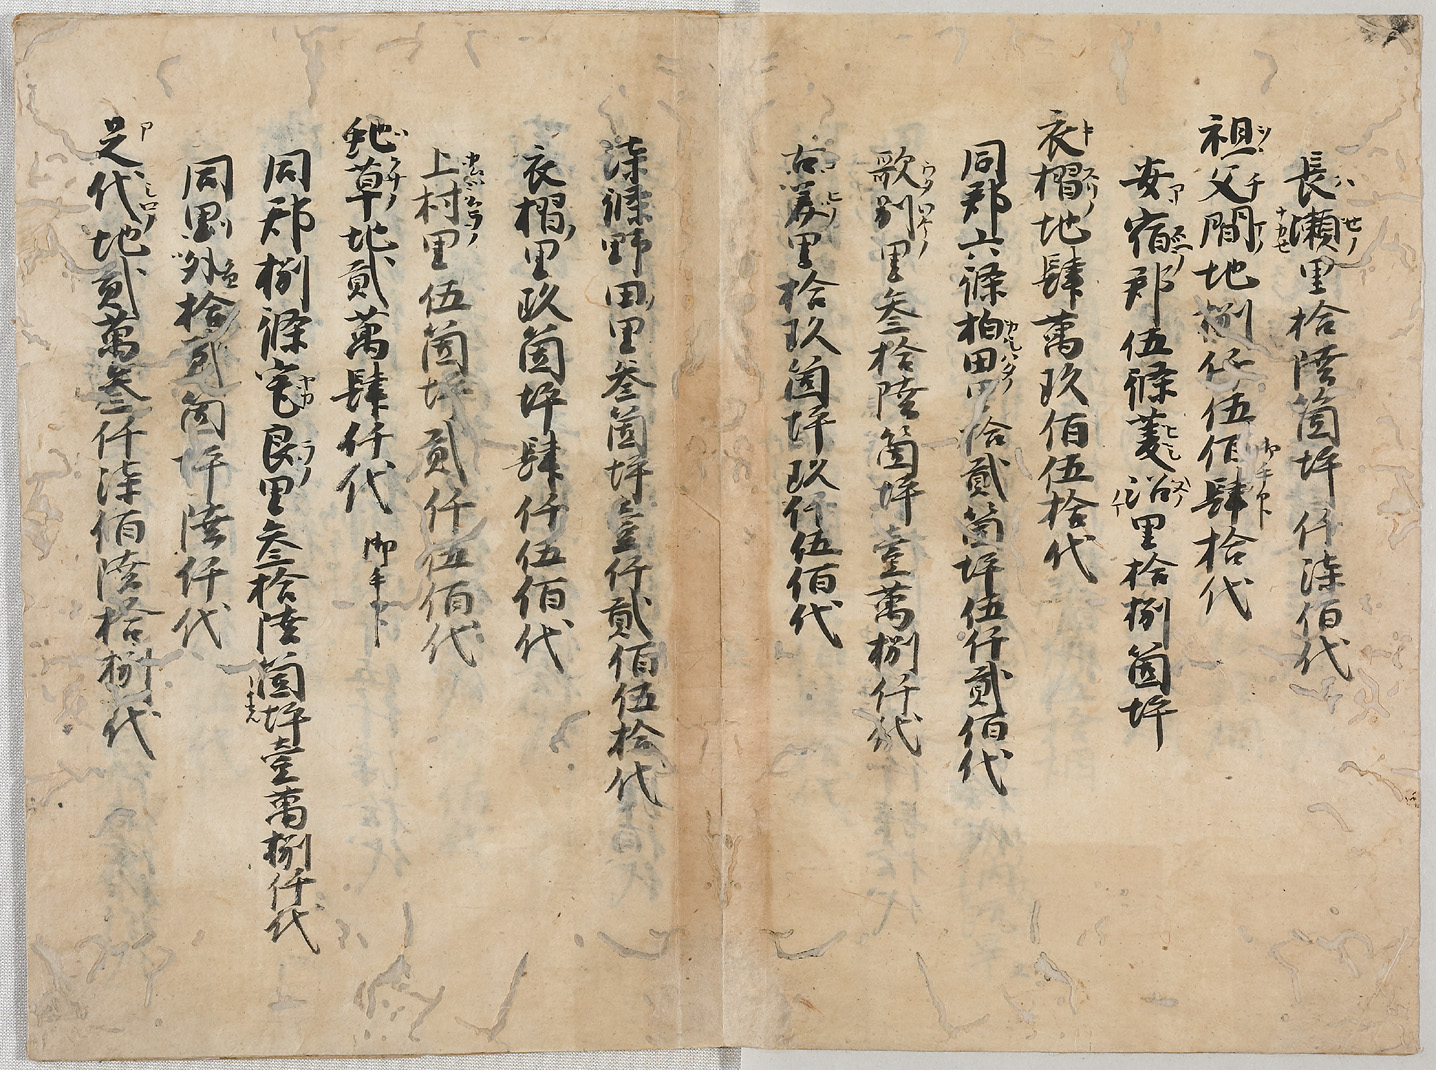 長瀬里拾陸箇坪仟柒佰代
祖父間地捌仟伍佰肆拾代
安宿郡伍條菱沼里拾捌箇坪
衣摺地肆萬玖佰伍拾代
同郡六條柏田里拾貳箇坪伍仟貳佰代
歌別里叁拾陸箇坪壹萬捌仟代
里拾玖箇坪玖仟伍佰代
柒條野田里叁箇坪壹仟貳佰伍拾代
衣摺里玖箇坪肆仟伍佰代
上村里伍箇坪貳仟伍佰代
蛇草地貳萬肆仟代 御手下
同郡捌條良里叁拾陸箇坪壹萬捌仟代
同里外拾貳箇坪陸仟代
足代地貳萬叁仟柒佰陸拾捌代